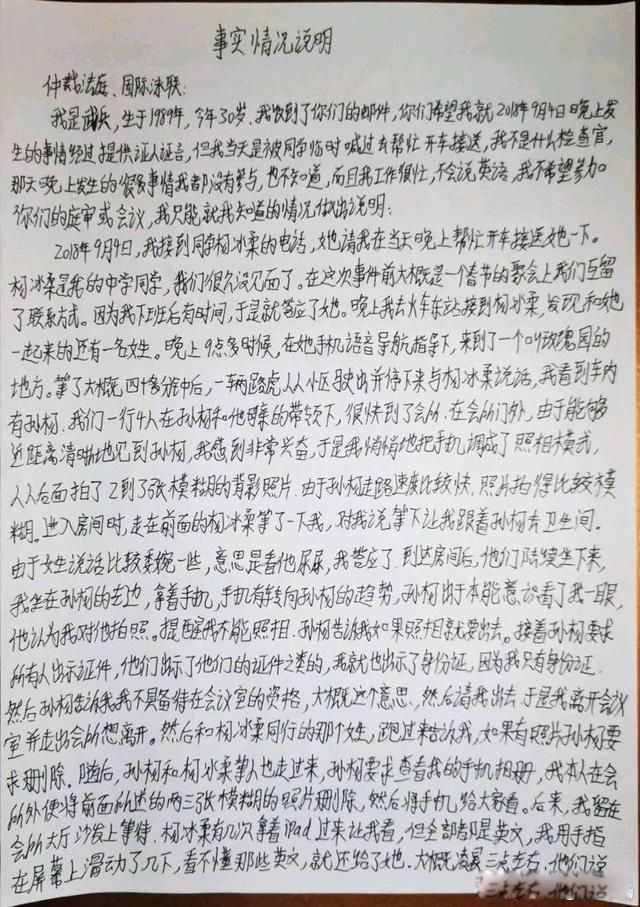 事实情况说明
仲裁法庭、国际泳联:
我是武兵,生于1989年,今年30岁。我收到了你们的邮件,你们希望我就2018年9月4日晚上发
生的事情经过提供证人证言,但我当天是被同学临时喊过去帮忙开车接送,我不是什么检查官,
那天晚上发生的很多事情我都没有参与,也不知道,而且我工作很忙,不会说英语,我不希望参加
你们的庭审或会议,我只能就我知道的情况做出说明:
2018年9月4日,我接到同学杨冰柔的电话,她请我在当天晚上帮忙开车接送她一下。
杨冰柔是我的中学同学,我们很久没见面了。在这次事件前大概是一个春节的聚会上我们互留
了联系方式。因为我下班后有时间,于是就答应了她。晚上我去火车东站接到杨冰柔,发现和她
一起来的还有一名女生。晚上9点多时候,在她手机语音导航指导下,来到了一个叫玫瑰园的
地方。等了大概四十多分钟后,一辆路虎从小区驶出并停下来与杨冰柔说话,我看到车内
有孙杨。我们一行4人在孙杨和他母亲的带领下,很快到了会所。在会所门外,由于能够
近距离清晰地见到孙杨,我感到非常兴奋,于是我悄悄地把手机调成了照相模式,
从后面拍了2到了3张模糊的背影照片。由于孙杨走路速度比较快,照片拍得比较模
糊。进入房间时,走在前面的杨冰柔等了一下我,对我说等下让我跟着孙杨去卫生间。
由于女生说话比较委婉一些,意思是看他尿尿,我答应了。到达房间后,他们陆续坐下来,
我坐在孙杨的左边,拿着手机,手机有转向孙杨的趋势,孙杨出于本能意识看了我一眼,
他认为我对他拍照。提醒我不能照相。孙杨告诉我如果照相就要出去。接着孙杨要求
所有人出示证件,他们出示了他们的证件之类的,我就也出示了身份证,因为我只有身份证。
然后孙杨告诉我我不具备待在会议室的资格,大概这个意思,然后请我出去。于是我离开会议
室并走出会所想离开。然后和杨冰柔同行的那个女生,跑过来告诉我,如果有照片孙杨要
求删除。随后,孙杨和杨冰柔等人也走过来,孙杨要求查看我的手机相册,我本人在会
所外便将前面所述的两三张模糊的照片删除,然后将手机给大家看。后来,我留在
会所大厅沙发上等待。杨冰柔有几次拿着ipad过来让我看,但全部都是英文,我用手指
在屏幕上滑动了几下,看不懂那些英文,就还给了她。大概凌晨三点左右,他们说